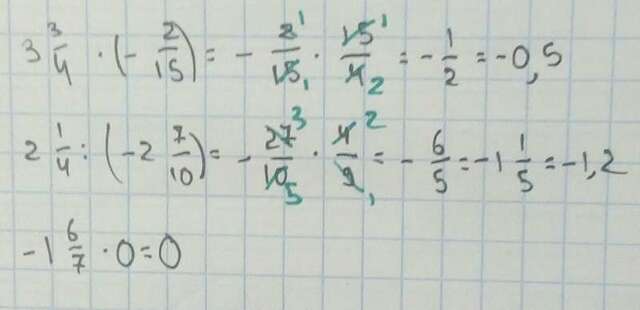 3 3/4 · (- 2/15) = - 2/15 · 15/4 = - 1/2 = -0,5
2 1/4 : (-2 7/10) = - 27/10 · 4/9 = - 6/5 = -1 1/5 = -1,2
-1 6/7 · 0 = 0